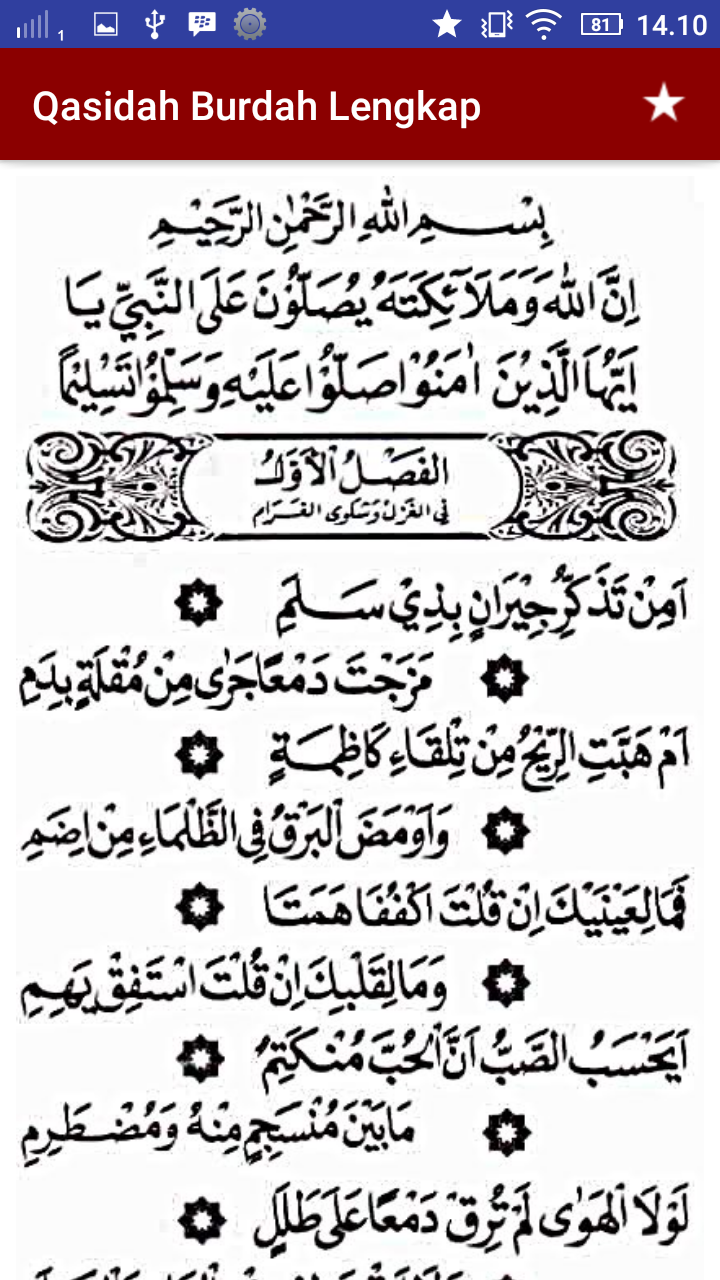 1 81 14.10
Qasidah Burdah Lengkap
بِسْــمِ اللهِ الرَّحْمٰنِ الرَّحِيْمِ
اِنَّ اللهَ وَمَلَآئِكَتَهُ يُصَلُّوْنَ عَلَى النَّبِيِّ يَا
اَيُّهَا الَّذِيْنَ اٰمَنُوْا صَلُّوْا عَلَيْهِ وَسَلِّمُوْا تَسْلِيْمًا
الفَصْلُ الْاَوَّلُ
فى الغزل وشكوى الغرام
اَمِنْ تَذَكُّرِ جِيْرَانٍ بِذِيْ سَلَمِ
مَزَجْتَ دَمْعًا جَرٰى مِنْ مُقْلَةٍ بِدَمِ
اَمْ هَبَّتِ الرِّيْحُ مِنْ تِلْقَاءِ كَاظِمَةٍ
وَاَوْمَضَ الْبَرْقُ فِى الظَّلْمَاءِ مِنْ اِضَمِ
فَمَا لِعَيْنَيْكَ اِنْ قُلْتَ اكْفُفَا هَمَتَا
وَمَا لِقَلْبِكَ اِنْ قُلْتَ اسْتَفِقْ يَهِمِ
اَيَحْسَبُ الصَّبُّ اَنَّ الْحُبَّ مُنْكَتِمٌ
مَا بَيْنَ مُنْسَجِمٍ مِنْهُ وَمُضْطَرِمِ
لَوْلَا الْهَوٰى لَمْ تُرِقْ دَمْعًا عَلٰى طَلَلٍ